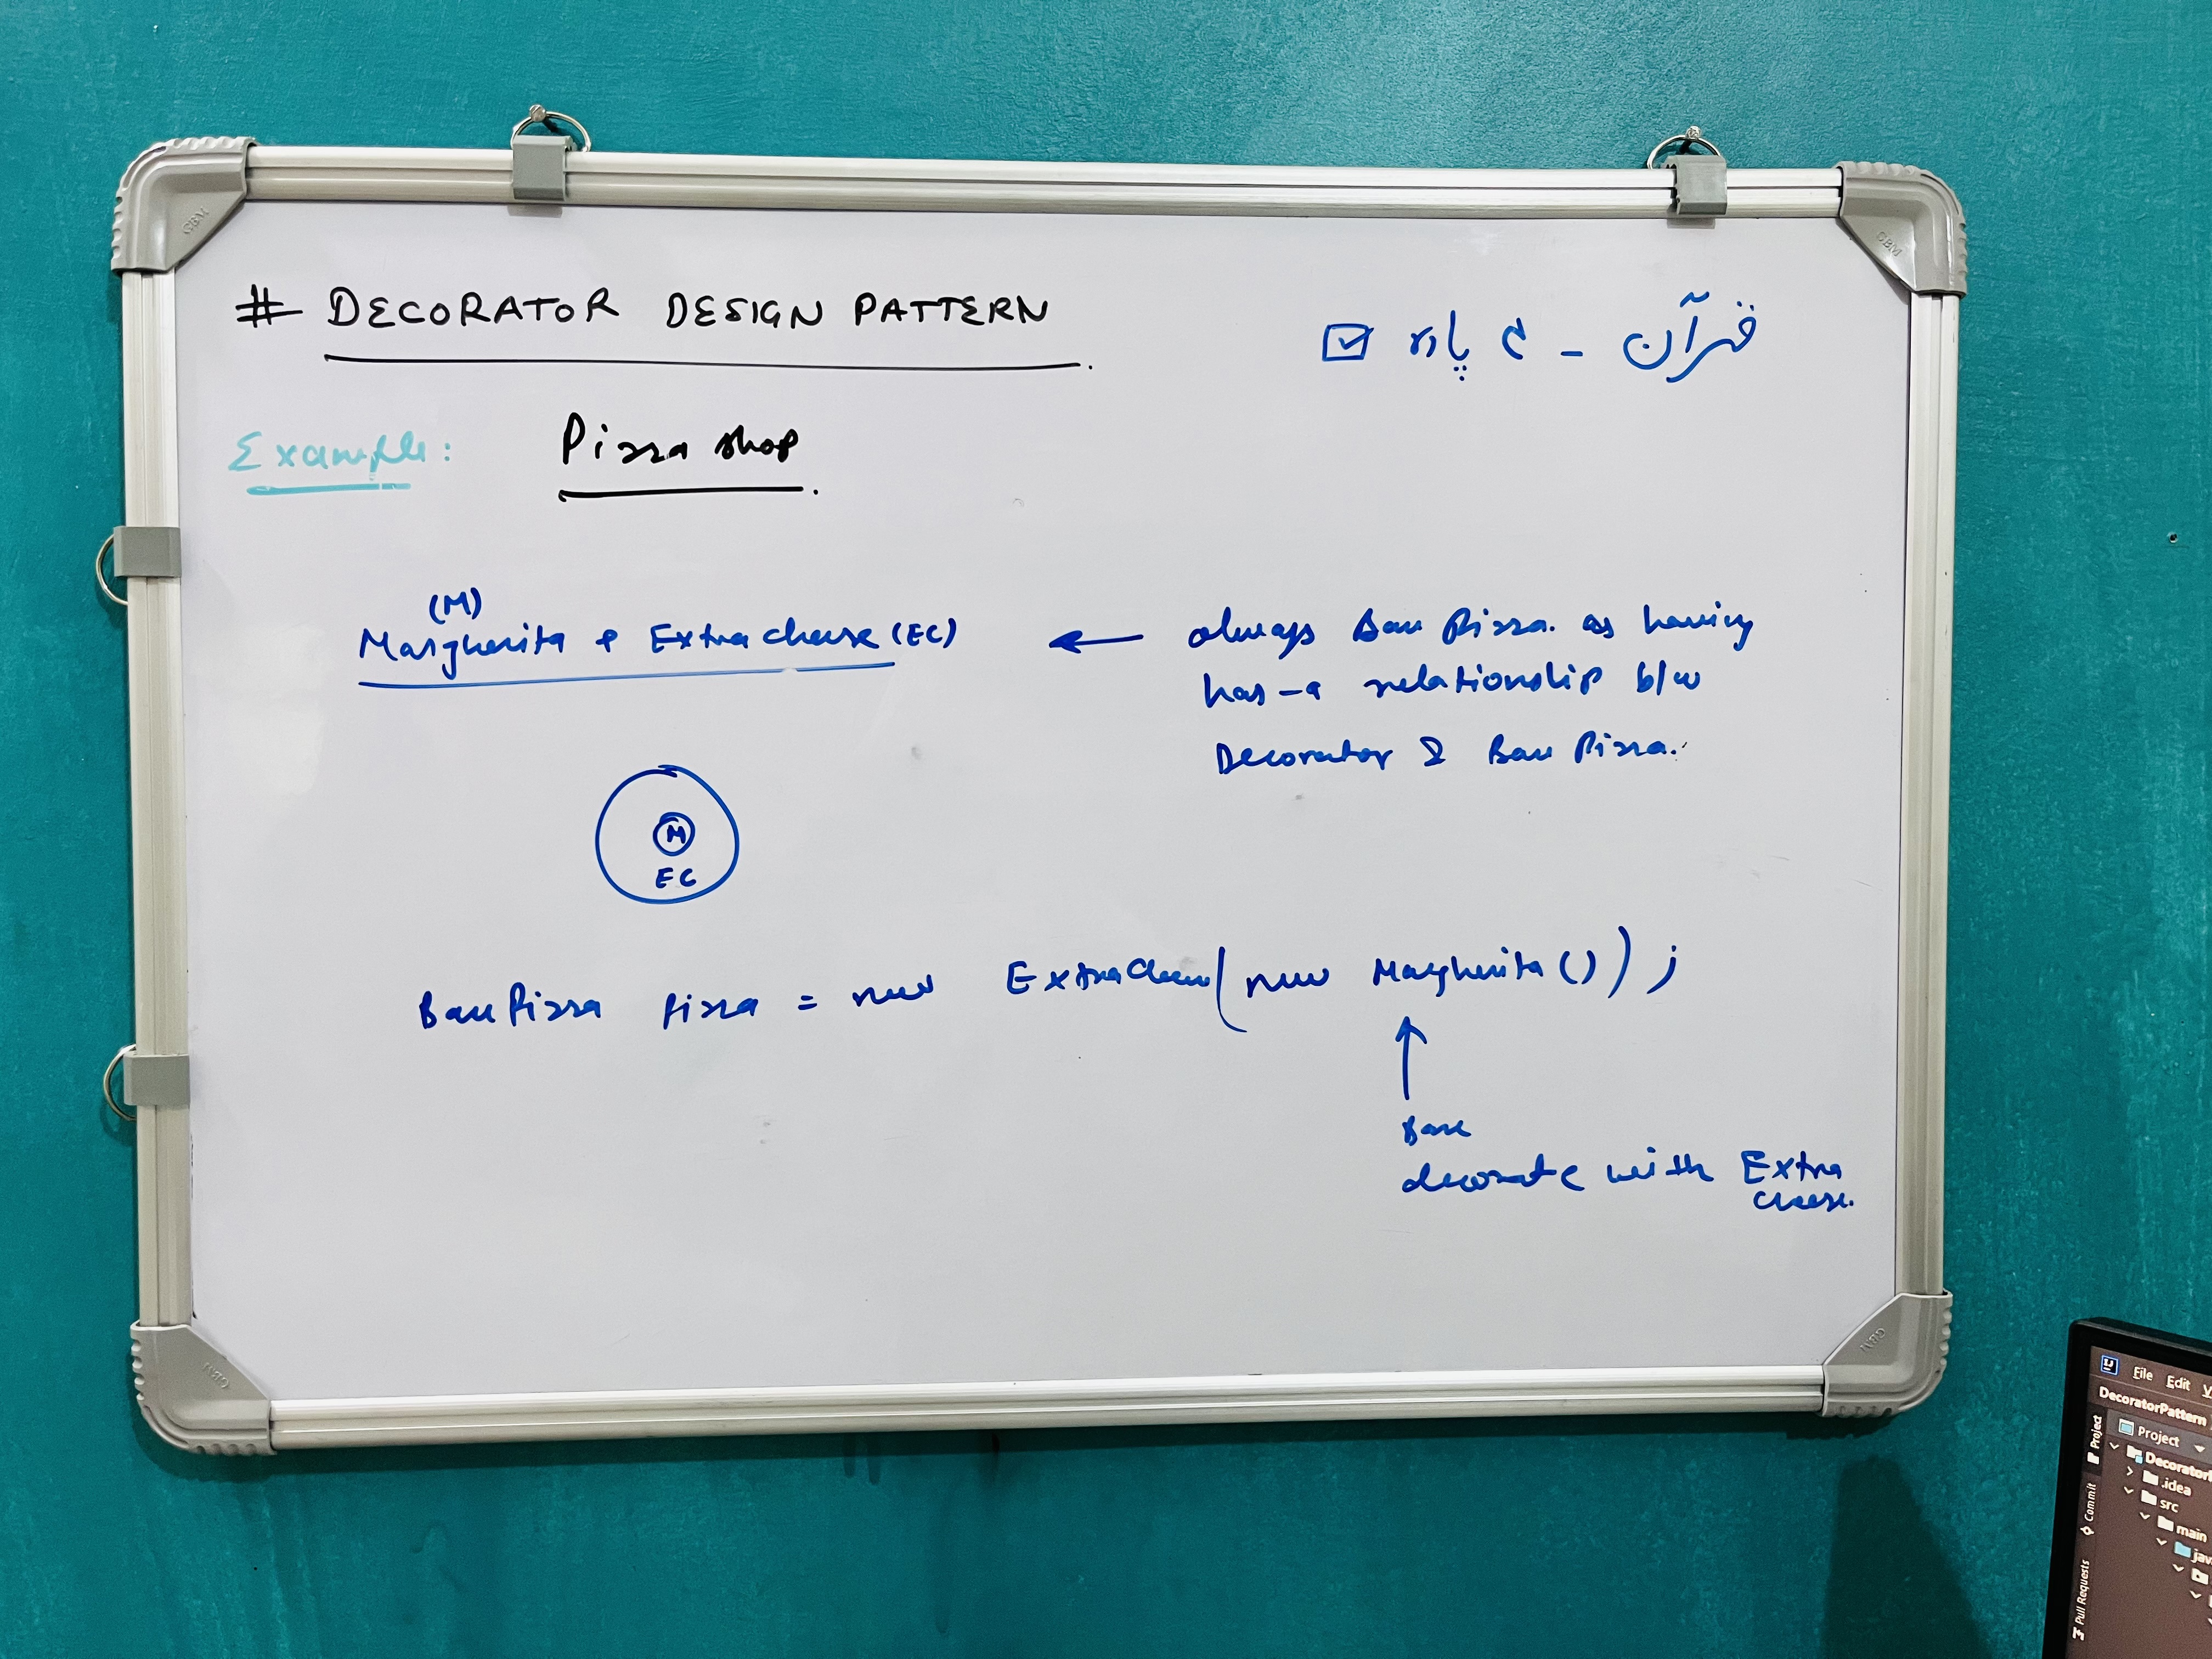 # DECORATOR DESIGN PATTERN
قرآن - ۴ پارہ ☑
Example: Pizza shop.
(M)
Margherita + Extra cheese (EC) ← always Base Pizza. as having
has-a relationship b/w
Decorator & Base Pizza.
M
EC
BasePizza pizza = new ExtraCheese(new Margherita());
↑
Base
decorate with Extra
cheese.
GBM
GBM
GBM
GBM
File Edit V
DecoratorPattern
Project
Project
Decorator
.idea
src
main
jav
Commit
Pull Requests